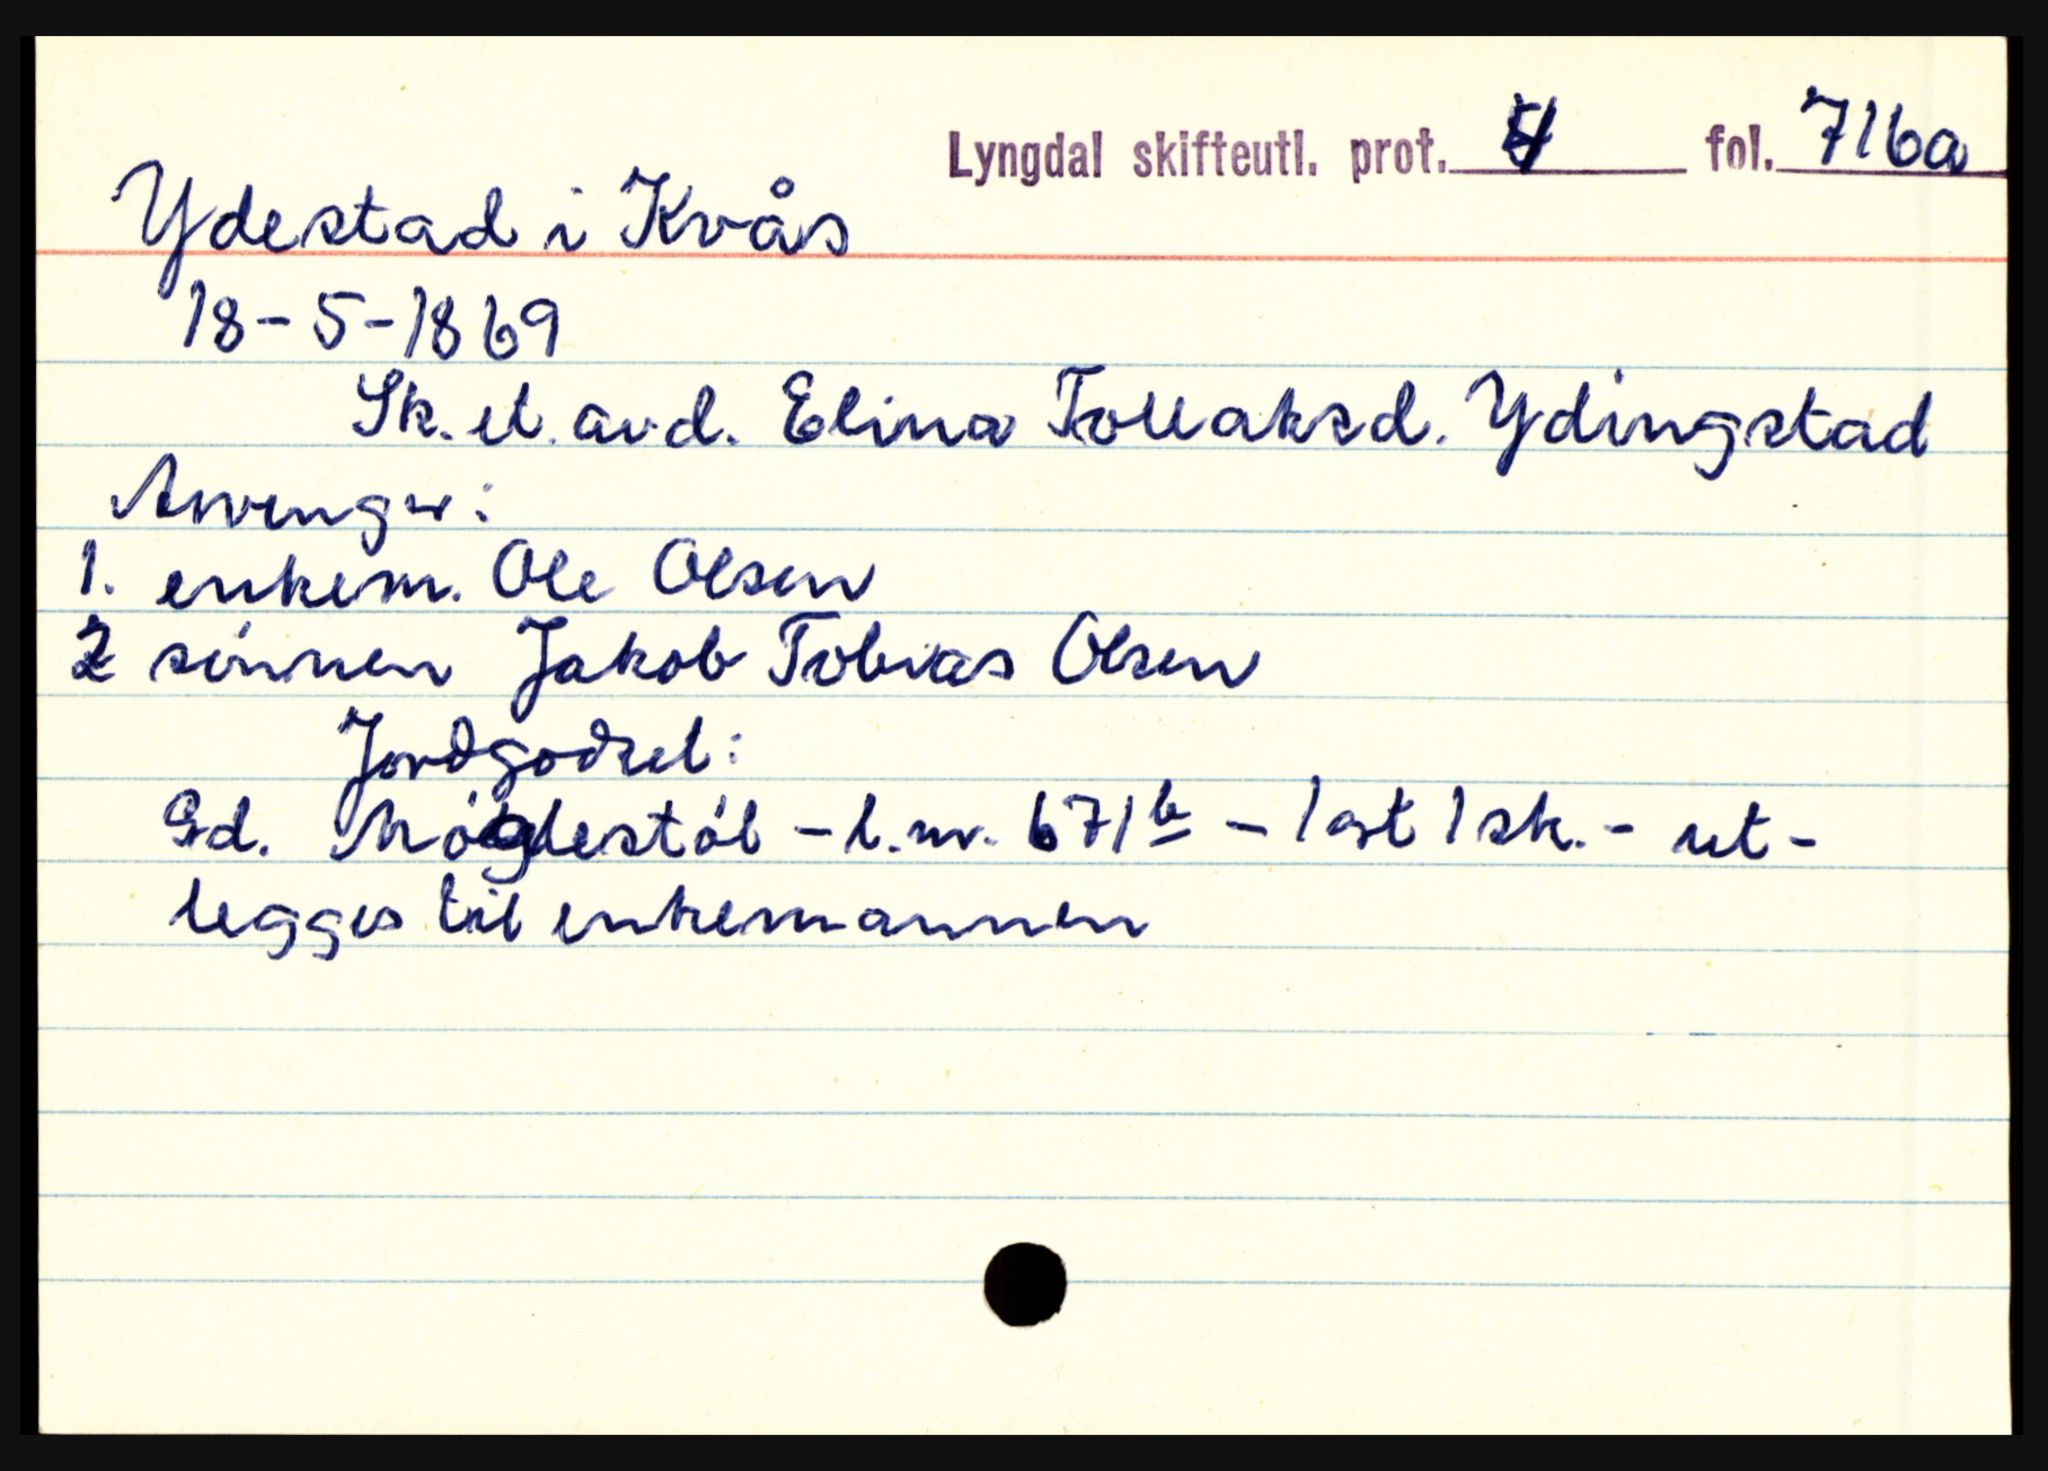 Lyngdal skifteutl. prot. fol. 716a
Ydestad i Kvås
18-5-1869
Sk. et. avd. Elina Tollaksd. Ydingstad
Arvinger:
1. enkem. Ole Olsen
2 sønnen Jakob Tobias Olsen
Jordgodset:
Gd. - l.nr. 671b - 1 ort 1 sk. - ut-
legges til enkemannen